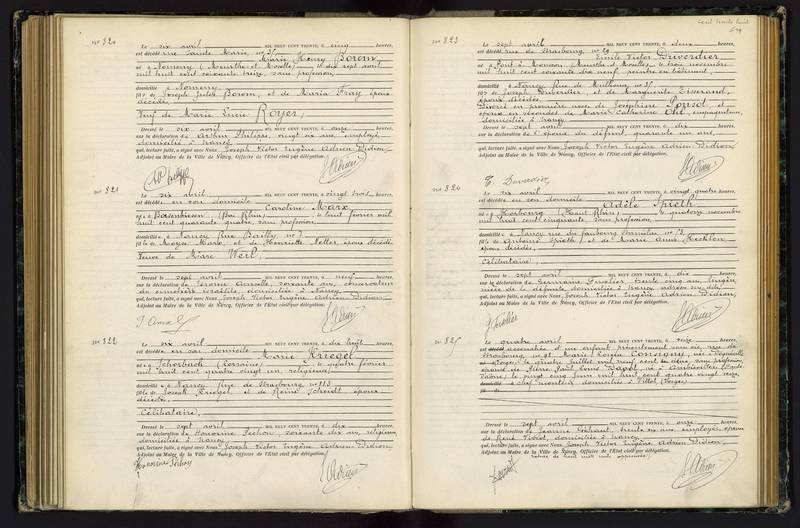 No 820
Le six avril MIL NEUF CENT TRENTE, à cinq heures,
est décédé rue Sainte Marie, no
Marie Henry Borom,
né à Nomeny (Meurthe et Moselle) le dix sept avril
mil huit cent soixante treize, sans profession,
domicilié à Nomeny,
fils de Joseph Jules Borom, et de Maria Fray, époux
décédés,
Veuf de Marie Lucie Royer,
Dressé le six avril MIL NEUF CENT TRENTE, à onze heures,
sur la déclaration de Arthur Philippe, vingt six ans, employé,
domicilié à Nancy
qui, lecture faite, a signé avec Nous, Joseph Victor Eugène Adrien Didion,
Adjoint au Maire de la Ville de Nancy, Officier de l'Etat civil par délégation.
No 821
Le six avril MIL NEUF CENT TRENTE, à vingt trois heures,
est décédée en son domicile
Caroline Marx
née à (Bas Rhin) le huit février mil
huit cent quarante sans profession
domiciliée à Nancy Rue Bailly, no 7
fille de Marx, et de Henriette Netter, époux décédés,
Veuve de Marc Weil,
Dressé le sept avril MIL NEUF CENT TRENTE, à neuf heures,
sur la déclaration de Jérome soixante ans, conservateur
du cimetière israélite, domicilié à Nancy
qui, lecture faite, a signé avec Nous, Joseph Victor Eugène Adrien Didion,
Adjoint au Maire de la Ville de Nancy, Officier de l'Etat civil par délégation.
No 822
Le six avril MIL NEUF CENT TRENTE, à dix huit heures,
est décédée en son domicile
Marie Kriegel
née à (Lorraine) le quatre février
mil huit cent quatre vingt un, religieuse,
domiciliée à Nancy Rue de Strasbourg no 113
fille de Joseph Kriegel, et de Reine Schmidt époux
décédés,
Célibataire,
Dressé le sept avril MIL NEUF CENT TRENTE, à dix heures,
sur la déclaration de Honorine Pichon, soixante dix ans, religieuse,
domiciliée à Nancy
qui, lecture faite, a signé avec Nous, Joseph Victor Eugène Adrien Didion,
Adjoint au Maire de la Ville de Nancy, Officier de l'Etat civil par délégation.
Honorine Pichon
Cent trente huit
No 823
Le sept avril MIL NEUF CENT TRENTE, à deux heures,
est décédé rue de Strasbourg no 29
Emile Victor Duverdier
né à Pont à Mousson (Meurthe et Moselle) le trois novembre
mil huit cent soixante dix neuf, peintre en bâtiment,
domicilié à Nancy, Rue de Mulhouse no 37
fils de Joseph Duverdier, et de Marguerite Tisserand,
époux décédés,
Divorcé en premières noces de Joséphine Ponsot et
époux en secondes de Marie Catherine
domiciliée à Nancy
Dressé le sept avril MIL NEUF CENT TRENTE, à dix heures,
sur la déclaration de l'épouse du défunt, quarante un ans,
qui, lecture faite, a signé avec Nous, Joseph Victor Eugène Adrien Didion,
Adjoint au Maire de la Ville de Nancy, Officier de l'Etat civil par délégation.
No 824
Le six avril MIL NEUF CENT TRENTE, à vingt quatre heures,
est décédée en son domicile
Adèle Spieth
née à Horbourg (Haut Rhin) le quatorze novembre
mil huit cent cinquante, sans profession
domiciliée à Nancy rue du faubourg Stanislas no 13
fille de Antoine Spieth, et de Marie Anne
époux décédés,
Célibataire,
Dressé le sept avril MIL NEUF CENT TRENTE, à dix heures,
sur la déclaration de Germaine trente cinq ans, lingère,
nièce de la défunte, domiciliée à Nancy
qui, lecture faite, a signé avec Nous, Joseph Victor Eugène Adrien Didion,
Adjoint au Maire de la Ville de Nancy, Officier de l'Etat civil par délégation.
No 825
Le quatre avril MIL NEUF CENT TRENTE, à seize heures,
est accouchée d'un enfant présentement sans vie, rue de
Strasbourg no 91 Marie Louise née à
(Vosges) le juillet mil neuf cent sans profession,
épouse de Pierre Paul Louis né à
Saône) le vingt juin mil huit cent quatre vingt
chef monteur domiciliés à Vittel (Vosges)
Dressé le sept avril MIL NEUF CENT TRENTE, à dix heures,
sur la déclaration de Jeanne trente six ans, employée, épouse
de René domiciliée à Nancy
qui, lecture faite, a signé avec Nous, Joseph Victor Eugène Adrien Didion,
Adjoint au Maire de la Ville de Nancy, Officier de l'Etat civil par délégation.